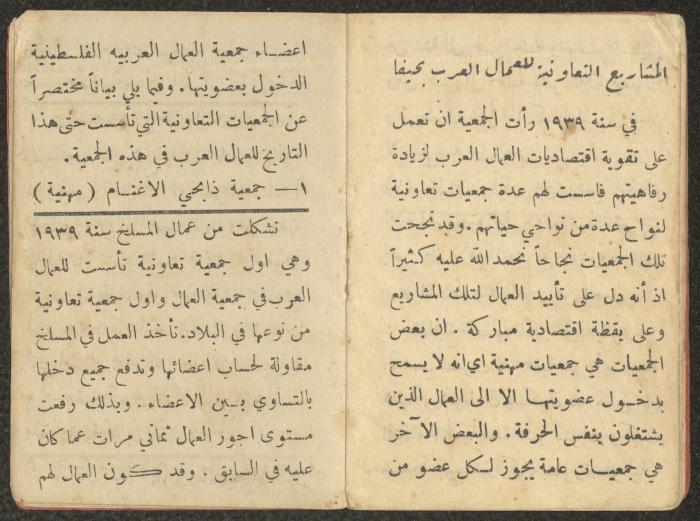 المشاريع التعاونية للعمال العرب بحيفا
في سنة ١٩٣٩ رأت الجمعية ان تعمل
على تقوية اقتصاديات العمال العرب لزيادة
رفاهيتهم فاسست لهم عدة جمعيات تعاونية
لنواح عدة من نواحي حياتهم . وقد نجحت
تلك الجمعيات نجاحاً نحمد الله عليه كثيراً
اذ أنه دل على تأييد العمال لتلك المشاريع
وعلى يقظة اقتصادية مباركة . ان بعض
الجمعيات هي جمعيات مهنية اي انه لا يسمح
بدخول عضويتها الا الى العمال الذين
يشتغلون بنفس الحرفة . والبعض الآخر
هي جمعيات عامة يجوز لكل عضو من
اعضاء جمعية العمال العربيه الفلسطينية
الدخول بعضويتها . وفيما يلي بياناً مختصراً
عن الجمعيات التعاونية التي تأسست حتى هذا
التاريخ للعمال العرب في هذه الجمعية .
١ — جمعية ذابحي الاغنام ( مهنية )
تشكلت من عمال المسلخ سنة ١٩٣٩
وهي اول جمعية تعاونية تأسست للعمال
العرب في جمعية العمال واول جمعية تعاونية
من نوعها في البلاد . تأخذ العمل في المسلخ
مقاولة لحساب اعضائها وتدفع جميع دخلها
بالتساوي بين الاعضاء . وبذلك رفعت
مستوى اجور العمال ثماني مرات عما كان
عليه في السابق . وقد كون العمال لهم